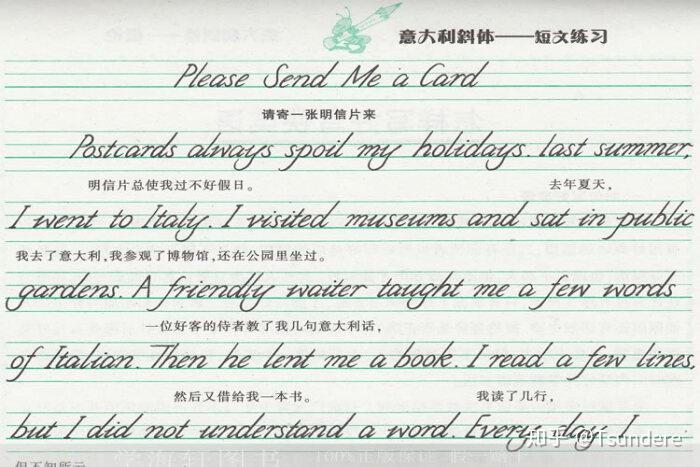 意大利斜体——短文练习
Please Send Me a Card
请寄一张明信片来
Postcards always spoil my holidays. last summer,
明信片总使我过不好假日。 去年夏天,
I went to Italy. I visited museums and sat in public
我去了意大利,我参观了博物馆,还在公园里坐过。
gardens. A friendly waiter taught me a few words
一位好客的侍者教了我几句意大利话,
of Italian. Then he lent me a book. I read a few lines,
然后又借给我一本书。 我读了几行,
but I did not understand a word. Every day I
知乎 @Tsundere